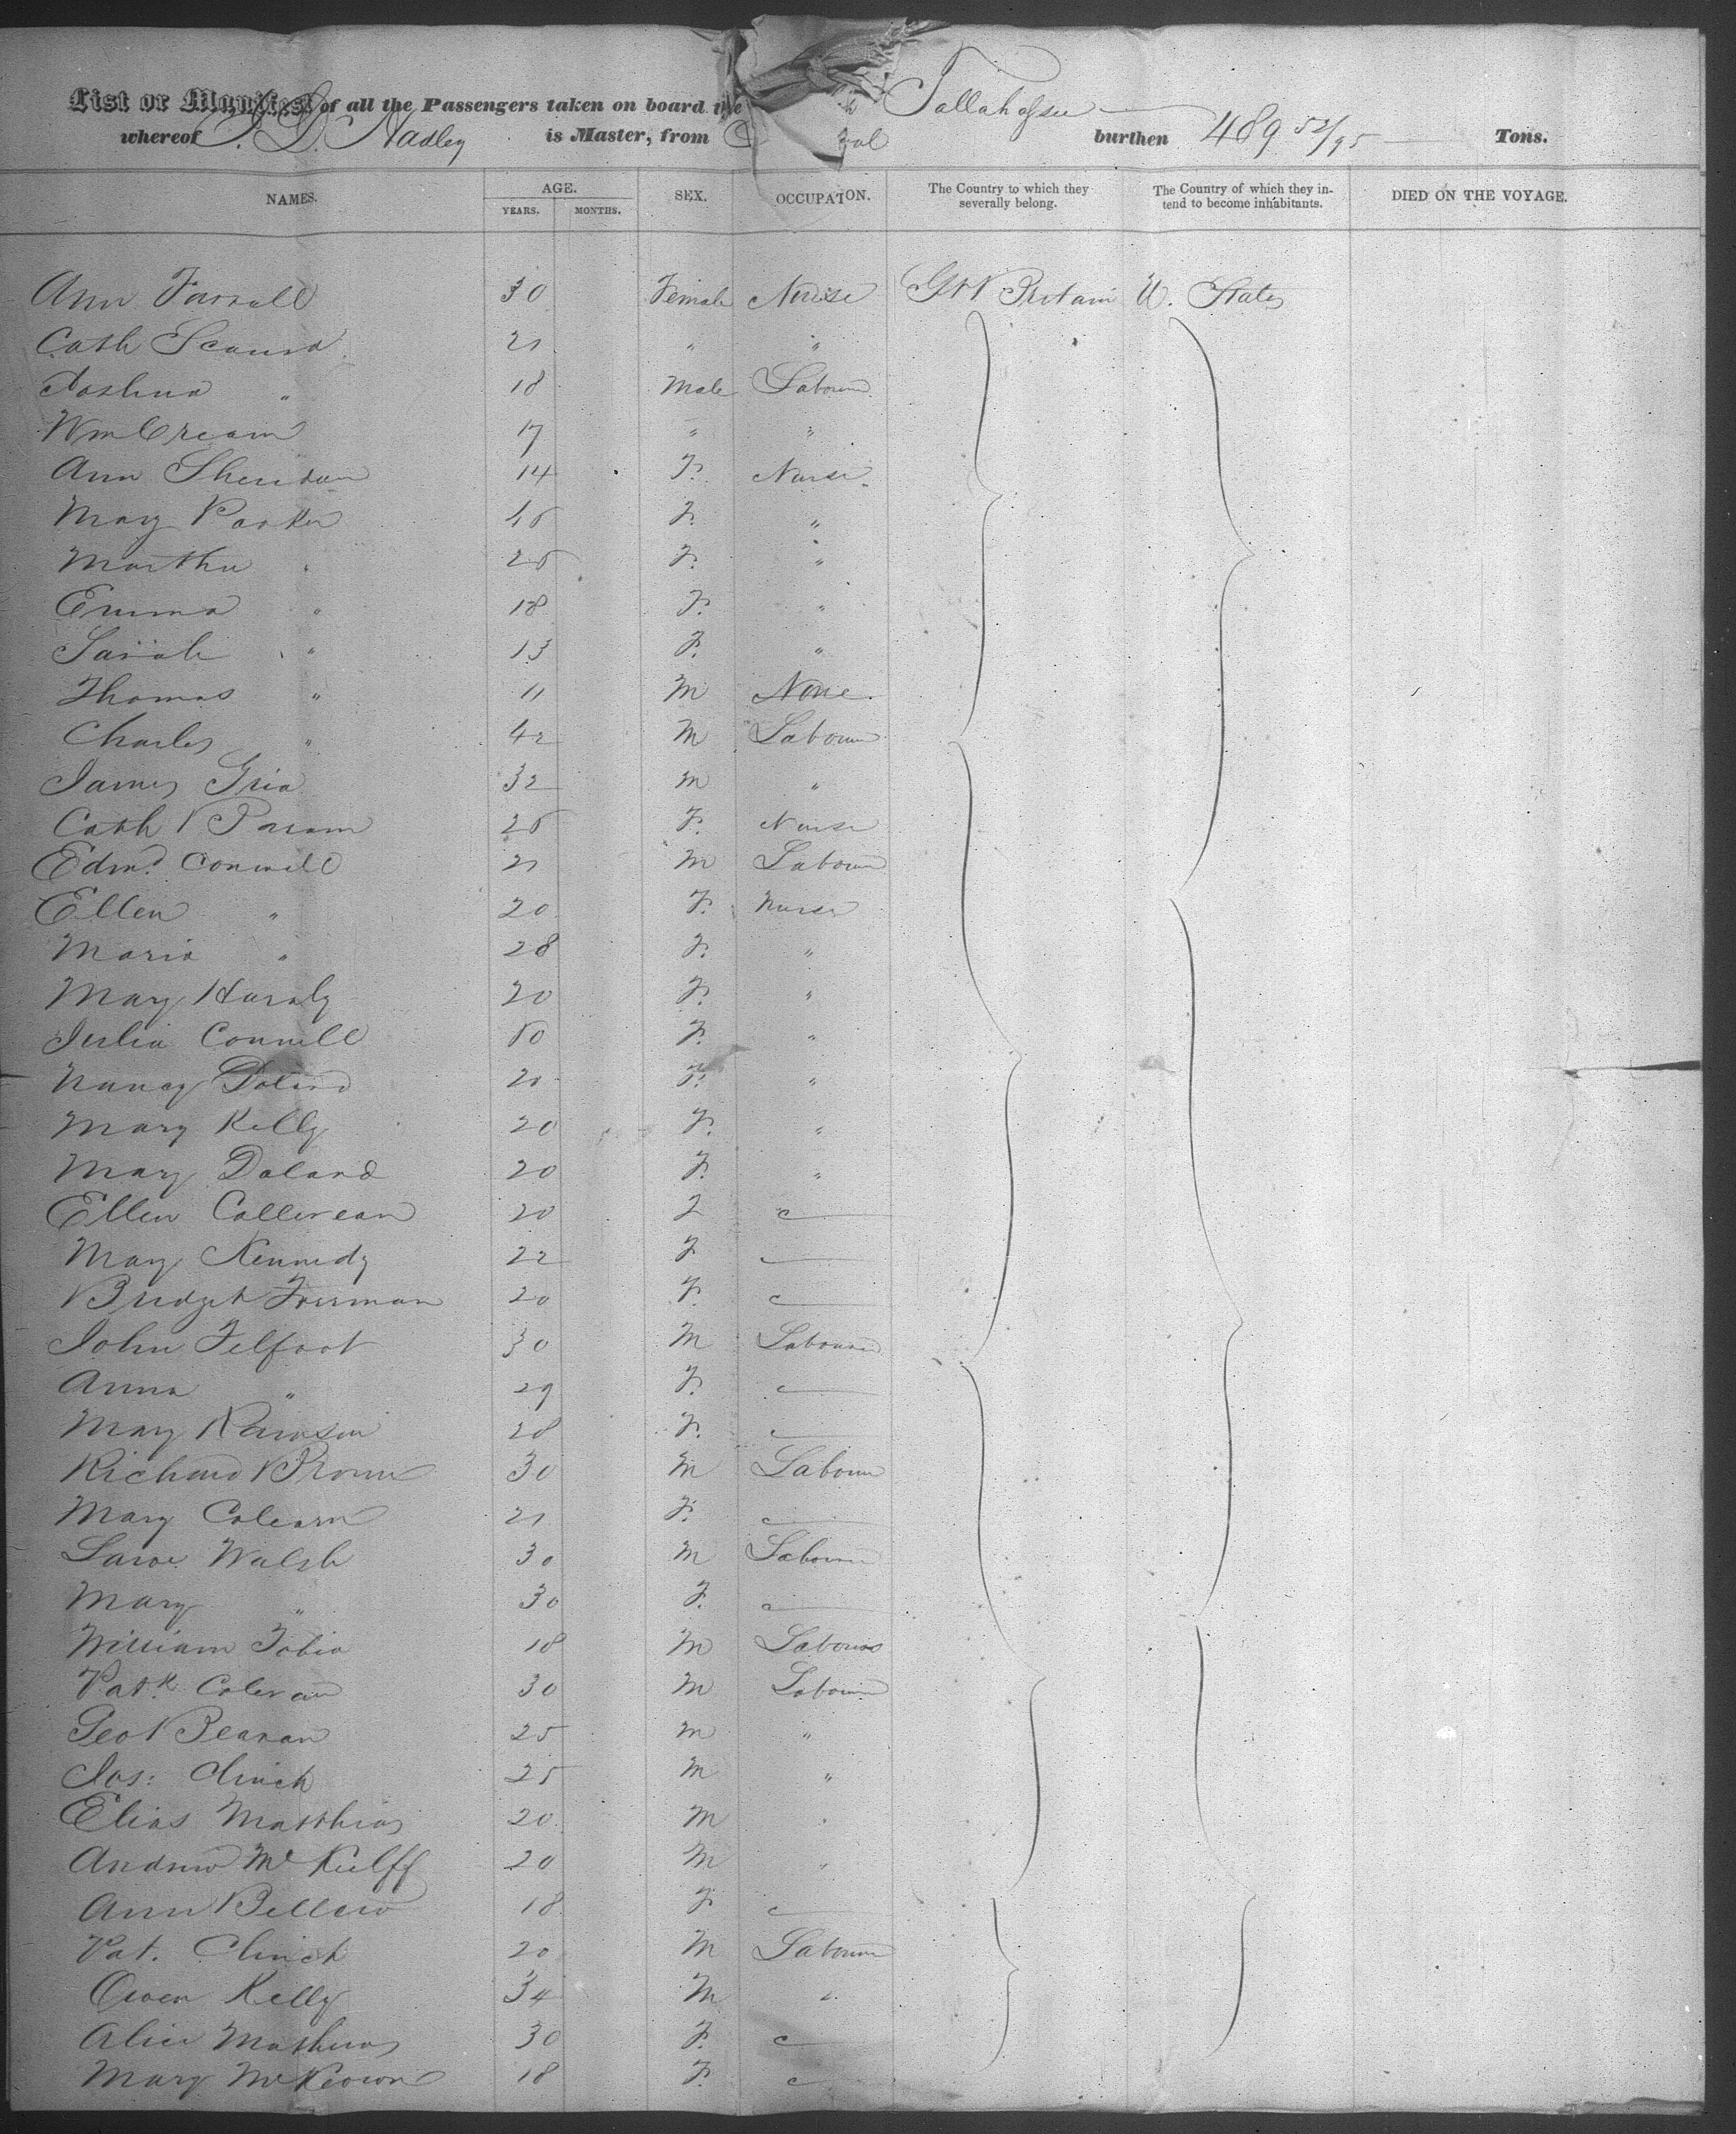 List or Manifest of all the Passengers taken on board the Tallahassee burthen 489 52/95 Tons.
whereof Hadley is Master, from
NAMES. AGE. SEX. OCCUPATON. The Country to which they severally belong. The Country of which they intend to become inhabitants. DIED ON THE VOYAGE.
YEARS. MONTHS.
Ann Farrall 30 Female Nurse Gt Britain U. States
Cath 21 " "
Joshua " 18 Male Labourer
Wm Cream 17 " "
Ann Sheridan 14 F. Nurse
Mary Parker 45 F. "
Martha " 25 F. "
Emma " 18 F. "
Sarah " 13 F. "
Thomas " 11 M None.
Charles " 42 M Labourer
James 32 M "
Cath 25 F. Nurse
Edmd. Connell 21 M Labourer
Ellen " 20 F. Nurse
Maria " 28 F. "
Mary 20 F. "
Julia Connell F. "
Nancy Doland 20 F. "
Mary Kelly 20 F. "
Mary Doland 20 F. "
Ellen Collerean 20 F
Mary Kennedy 22 F
Bridget 20 F.
John Telfoot 30 M Labourer
Anna " 29 F.
Mary 28 F.
Richard Brown 30 M Labourer
Mary Colearn 21 F.
Lawe Walsh 30 M Labourer
Mary " 30 F.
William Tobin 18 M Labourer
Patk. Coleran 30 M Labourer
Geo Bearan 25 M "
Jas: Clinch 25 M "
Elias Matthias 20 M "
Andrew Mc 20 M "
Ann Bellew 18 F
Pat. Clinch 20 M Labourer
Owen Kelly 34 M "
Alice Mathews 30 F.
Mary McKeown 18 F.